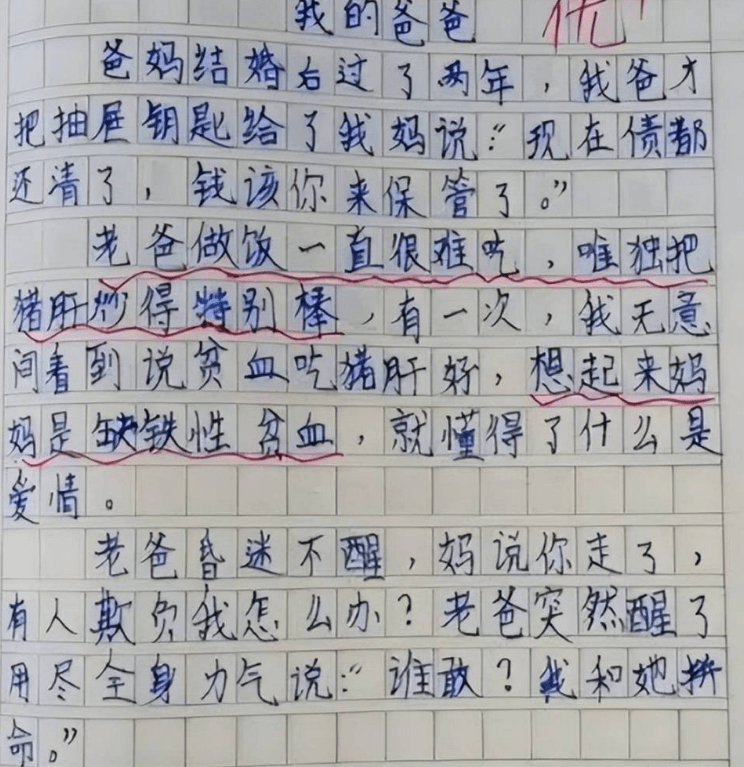 我的爸爸 优
爸妈结婚右过了两年，我爸才
把抽屉钥匙给了我妈说："现在债都
还清了，钱该你来保管了。"
老爸做饭一直很难吃，唯独把
猪肝炒得特别棒，有一次，我无意
间看到说贫血吃猪肝好，想起来妈
妈是缺铁性贫血，就懂得了什么是
爱情。
老爸昏迷不醒，妈说你走了，
有人欺负我怎么办？老爸突然醒了
用尽全身力气说："谁敢？我和她拚
命。"